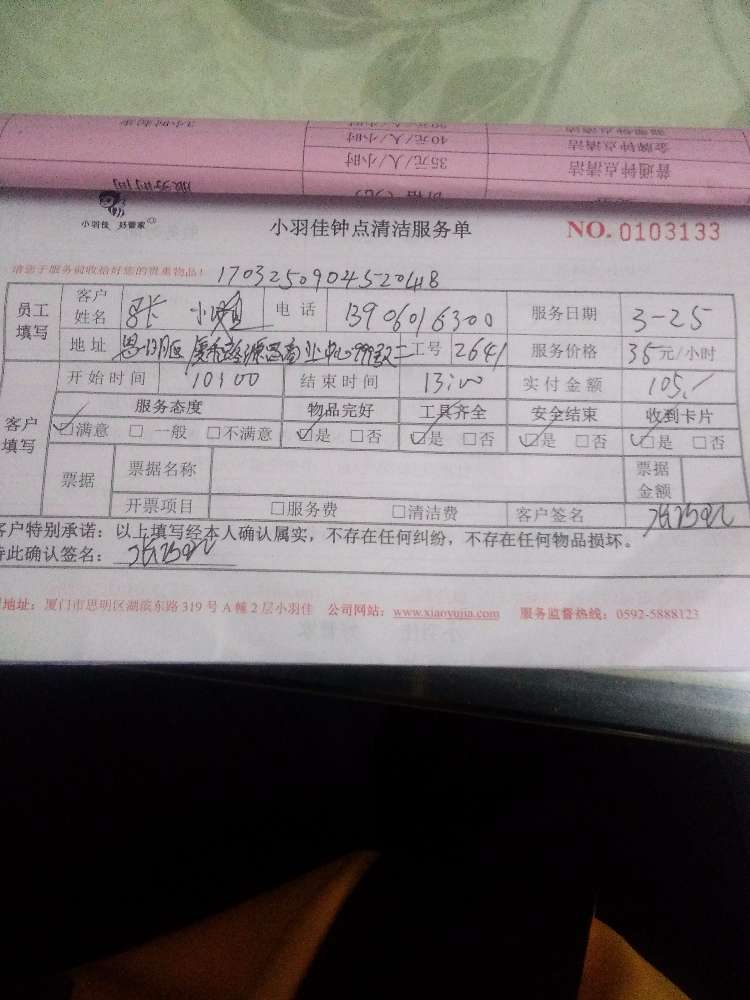 3小时起步
金牌钟点清洁 40元/人/小时
普通钟点清洁 35元/人/小时
服务时间 价格(元)
小羽佳 好管家
小羽佳钟点清洁服务单 NO. 0103133
请您于服务前收拾好您的贵重物品! 1703250904520418
员工填写 客户姓名 张小姐 电话 13906016300 服务日期 3-25
地址 思明区 源昌商业中心 工号 2641 服务价格 35元/小时
客户填写 开始时间 10:00 结束时间 13:00 实付金额 105
服务态度 物品完好 工具齐全 安全结束 收到卡片
☑满意 □一般 □不满意 ☑是 □否 ☑是 □否 ☑是 □否 ☑是 □否
票据 票据名称 票据金额
开票项目 □服务费 □清洁费 客户签名
客户特别承诺:以上填写经本人确认属实,不存在任何纠纷,不存在任何物品损坏。
特此确认签名:
地址:厦门市思明区湖滨东路319号A幢2层小羽佳 公司网站:www.xiaoyujia.com 服务监督热线:0592-5888123